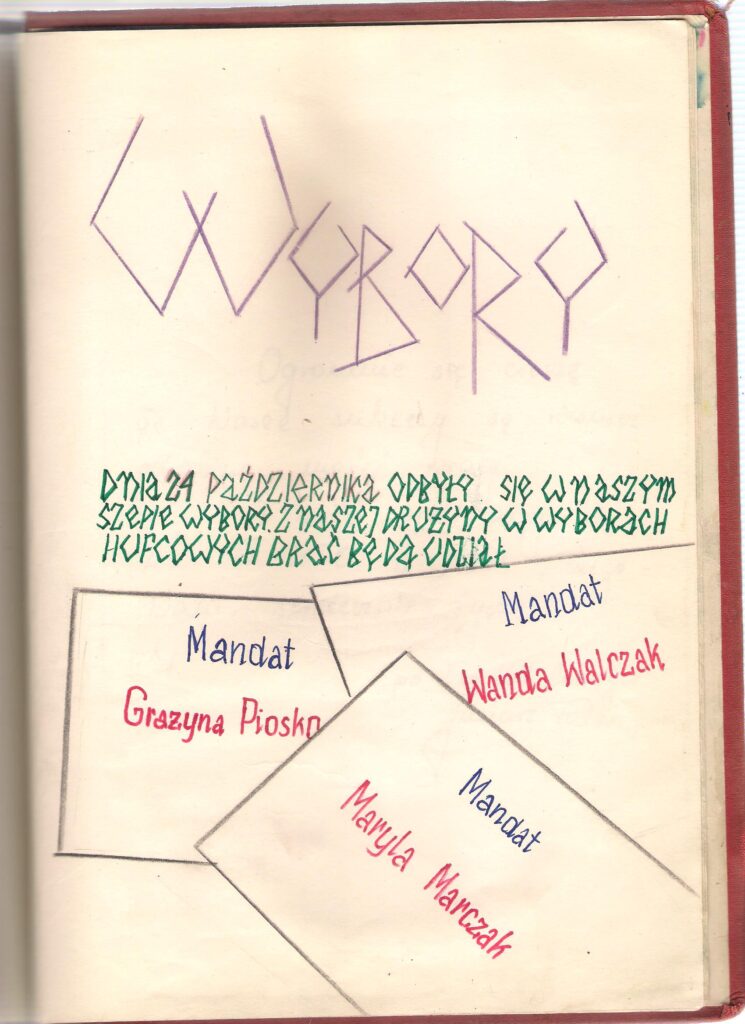 WYBORY
DNIA 24 PAŹDZIERNIKA ODBYŁY SIĘ W NASZYM
SZEPIE WYBORY. Z NASZEJ DRUŻYNY W WYBORACH
HUFCOWYCH BRAĆ BĘDĄ UDZIAŁ
Mandat
Wanda Walczak
Mandat
Grażyna Piosko
Mandat
Maryla Marczak